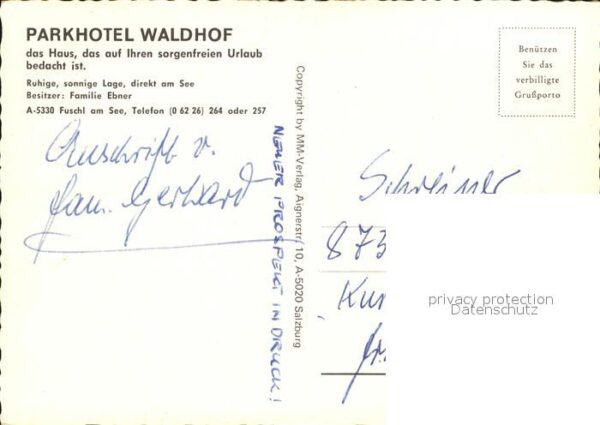 PARKHOTEL WALDHOF
das Haus, das auf Ihren sorgenfreien Urlaub
bedacht ist.
Ruhige, sonnige Lage, direkt am See
Besitzer: Familie Ebner
A-5330 Fuschl am See, Telefon (0 62 26) 264 oder 257
Anschrift v.
Fam. Gerhard
NEUER PROSPEKT IN DRUCK!
Copyright by MM-Verlag, Aignerstr. 10, A-5020 Salzburg
Benützen
Sie das
verbilligte
Grußporto
Schreiner
873
Kur
privacy protection
Datenschutz